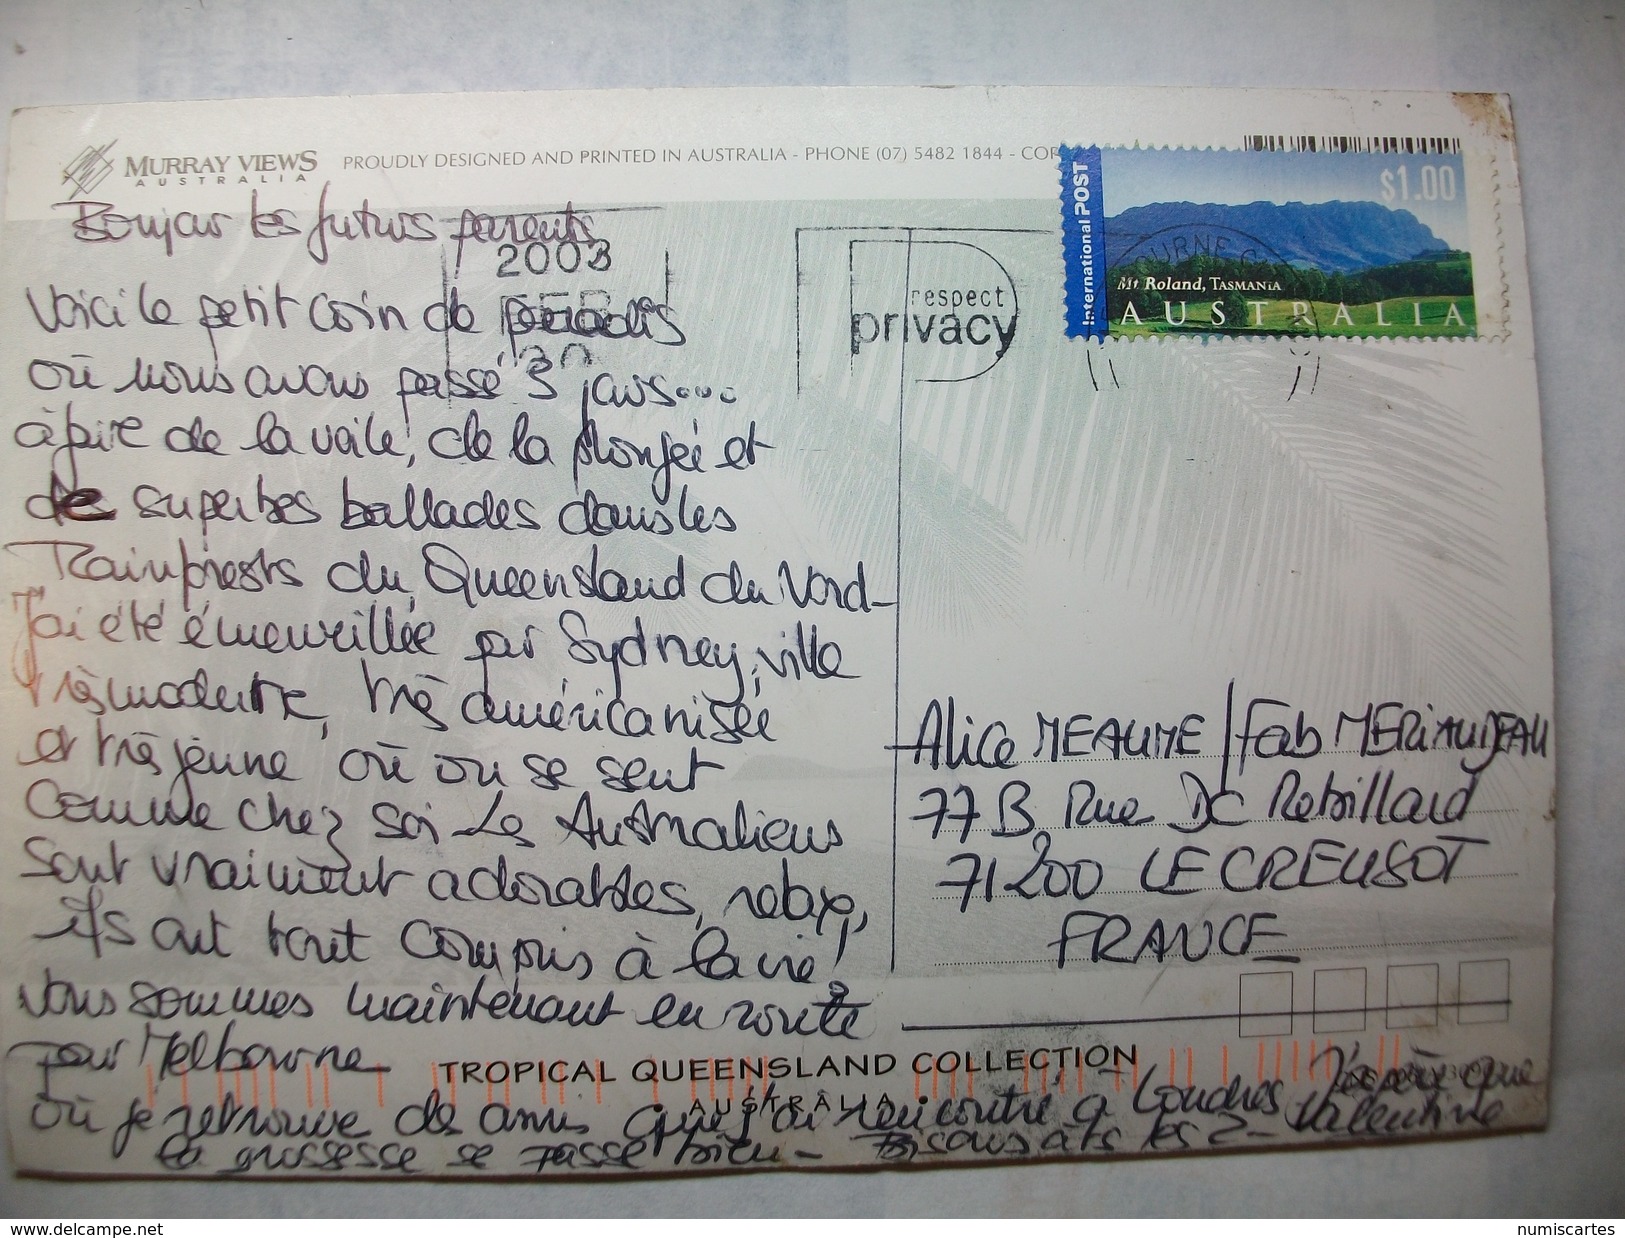 MURRAY VIEWS
AUSTRALIA
PROUDLY DESIGNED AND PRINTED IN AUSTRALIA - PHONE (07) 5482 1844 - COP
International POST
$1.00
Mt Roland, TASMANIA
AUSTRALIA
2003
FEB
respect
privacy
Bonjour les futurs parents
Voici le petit coin de paradis
où nous avons passé 3 jours....
à faire de la voile, de la plongée et
des superbes ballades dans les
Rainforests du Queensland du Nord -
J'ai été émerveillée par Sydney, ville
très moderne, très américanisée
et très jeune où on se sent
comme chez soi - Les Australiens
sont vraiment adorables, relax,
ils ont tout compris à la vie!
Nous sommes maintenant en route
pour Melbourne
où je retrouve des amis que j'ai rencontré à Londres J'espère que
la grossesse se passe bien - Bisous à ts les 2 - Valentine
Alice MEAUME / Fab MERIAUDEAU
77B Rue De Rebillard
71200 LE CREUSOT
FRANCE
TROPICAL QUEENSLAND COLLECTION
AUSTRALIA
www.delcampe.net
numiscartes